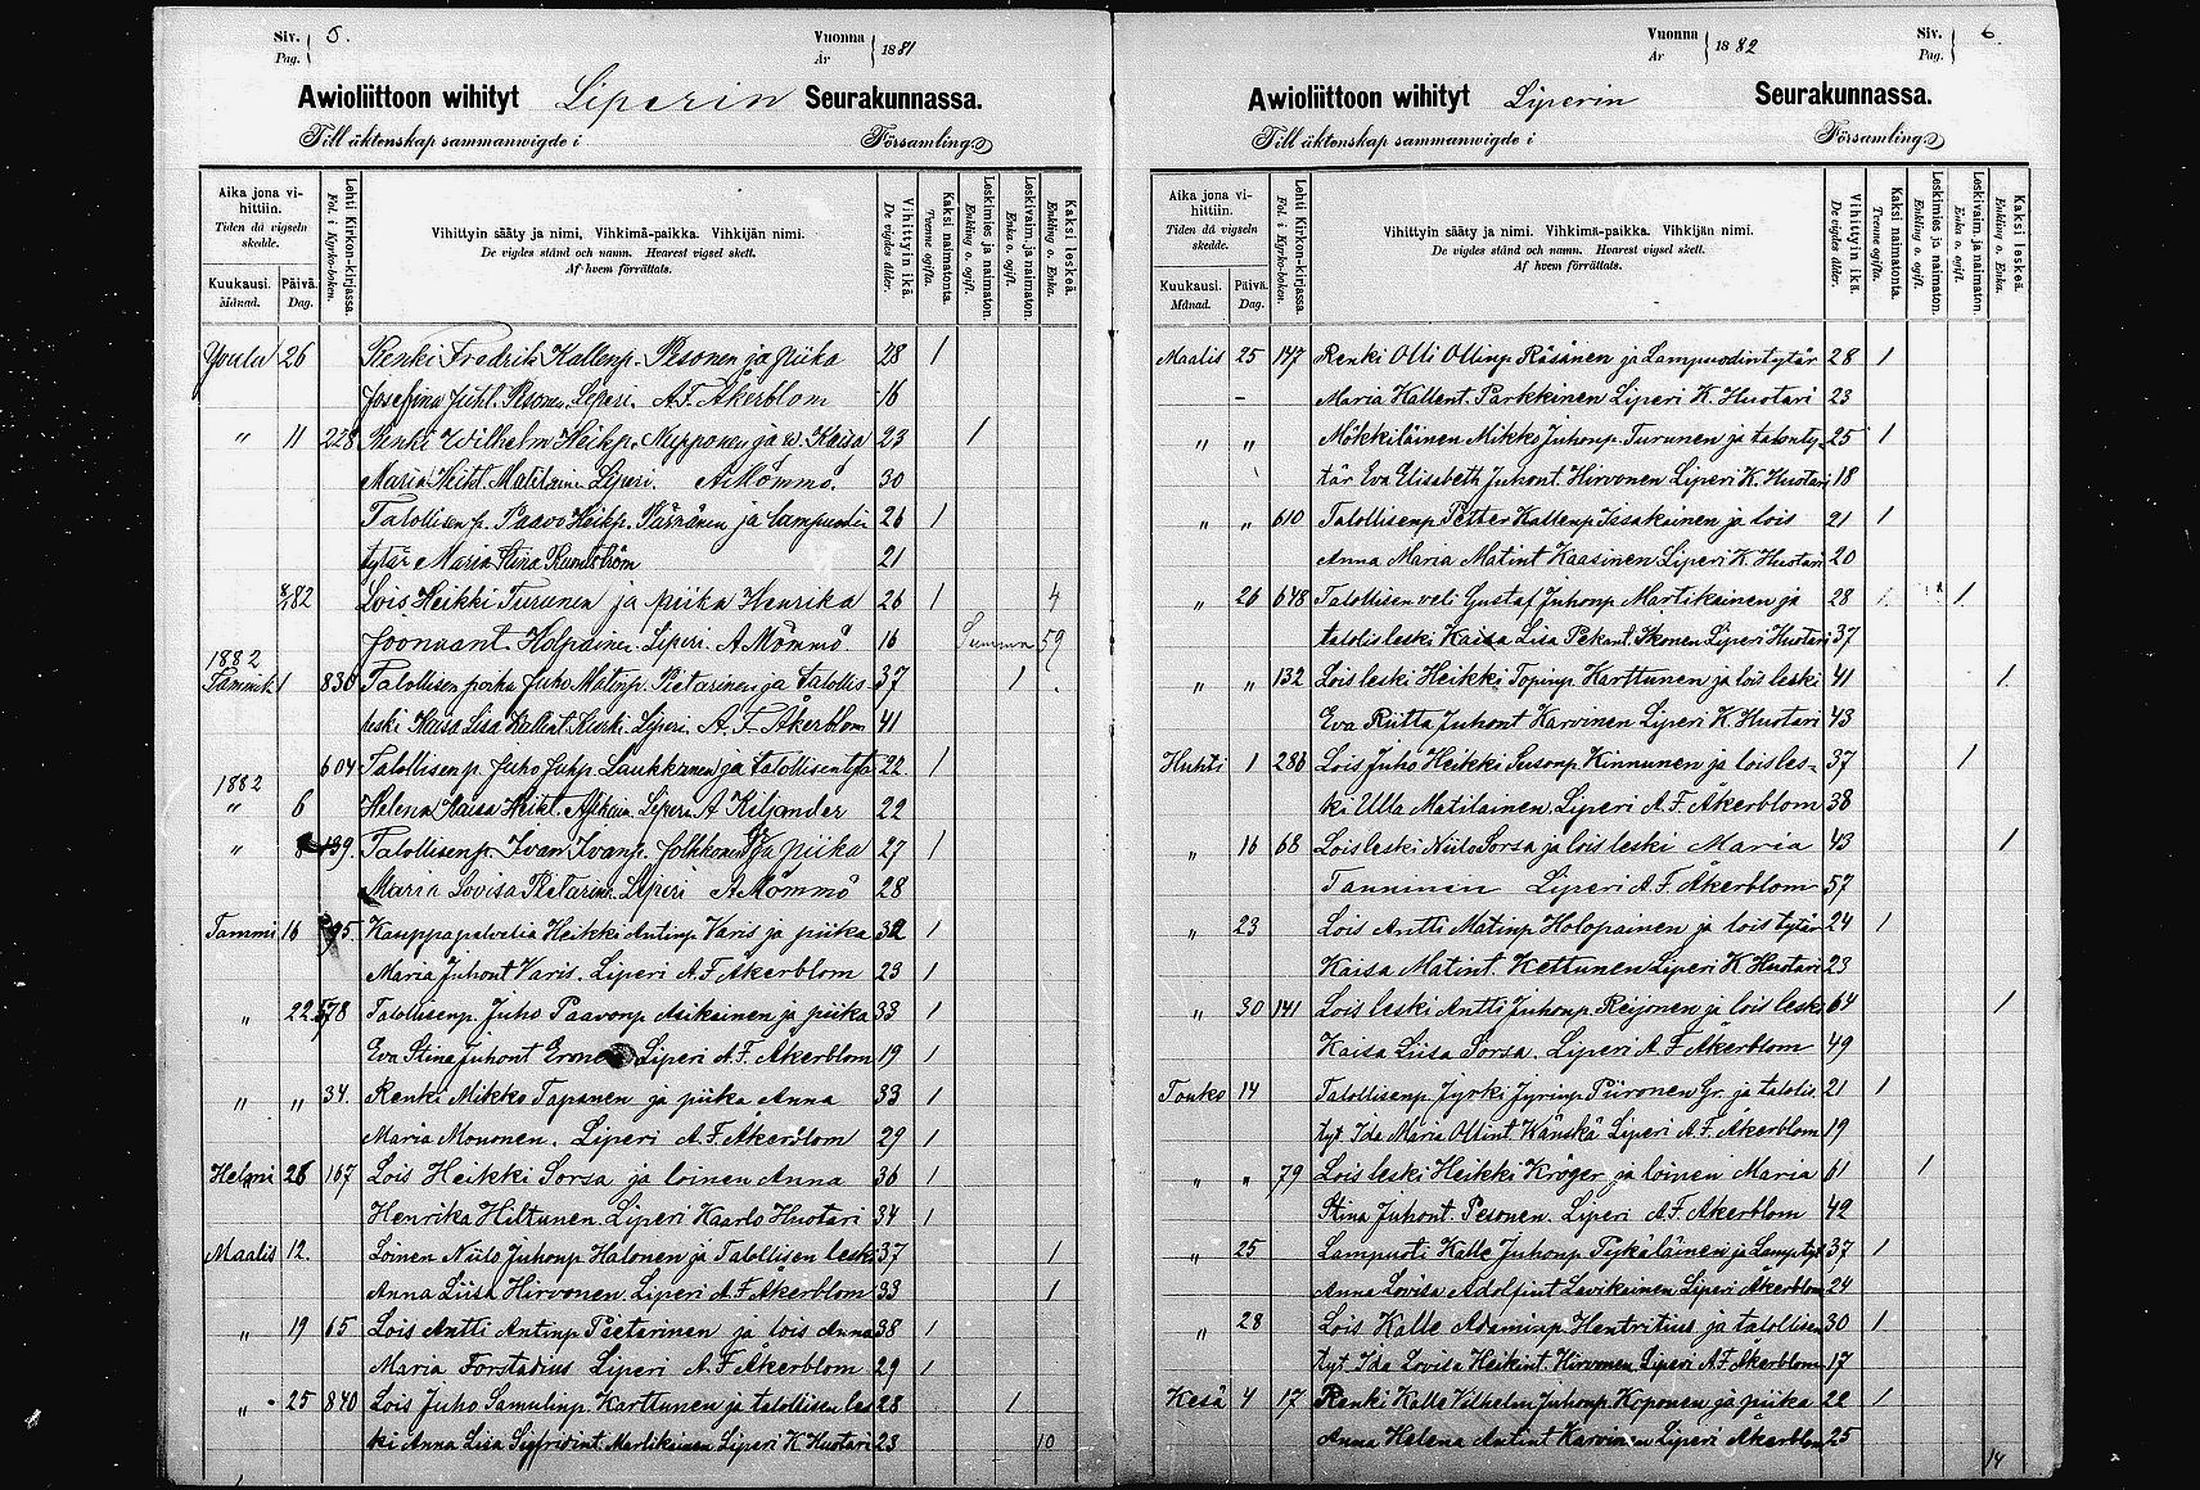 Siv. 5.
Pag.
Vuonna
År
1881
Awioliittoon wihityt Liperin Seurakunnassa.
Till äktenskap sammanwigde i Församling.
Aika jona vihittiin.
Tiden då vigseln skedde.
Kuukausi. Månad.
Päivä. Dag.
Lehti Kirkon-kirjassa.
Fol. i Kyrko-boken.
Vihittyin sääty ja nimi, Vihkimä-paikka. Vihkijän nimi.
De vigdes stånd och namn. Hvarest vigsel skett.
Af hvem förrättats.
Vihittyin ikä.
De vigdes ålder.
Kaksi naimatonta.
Tvenne ogifta.
Leskimies ja naimaton.
Enkling o. ogift.
Leskivaim. ja naimaton.
Enka o. ogift.
Kaksi leskeä.
Enkling o. Enka.
Joulu 26 Renki Fredrik Kallenp. Pesonen ja piika 28 1
Josefina Juhl. Pesonen. Liperi. A.F. Åkerblom 16
" 11 228 Renki Wilhelm Heikp. Nupponen ja w. Kaisa 23 1
Maria Heikt. Matilainen Liperi. A Mömmö. 30
Talollisen p. Paavo Heikp. Pärnänen ja lampuodin 26 1
tytär Maria Stina Rundström 21
8/1 82 Lois Heikki Turunen ja piika Henrika 26 1 4
Joonaant. Holpainen. Liperi. A Mömmö. 16 Summa 59
1882
Tammik 1 830 Talollisen poika Juho Matinp. Pietarinen ja talollis 37 1
leski Kaisa Lisa Kallent. Kurki. Liperi. A. F. Åkerblom 41
604 Talollisen p. Juho Juhp. Laukkanen ja talollisentytä 22. 1
1882
" 6 Helena Kaisa Heikt. Liperi. A Kiljander 22
" 8 439. Talollisenp. Ivan Ivanp. Jolkkonen Gr ja piika 27 1
Maria Lovisa Pietarinen. Liperi A Mömmö 28
Tammi 16 95. Kauppapalvelia Heikki Antinp. Varis ja piika 32 1
Maria Juhont Varis. Liperi A.F Åkerblom 23 1
" 22. 578 Talollisenp. Juho Paavonp Asikainen ja piika 33 1
Eva Stina Juhont Liperi A.F. Åkerblom 19 1
" " 34. Renki Mikko Tapanen ja piika Anna 33 1
Maria Mononen. Liperi A.F. Åkerblom 29 1
Helmi 26 167 Lois Heikki Sorsa ja loinen Anna 36 1
Henrika Hiltunen. Liperi Kaarlo Huotari 34 1
Maalis 12. Loinen Niilo Juhonp Halonen ja Talollisen leski 37 1
Anna Liisa Hirvonen. Liperi A.F Åkerblom 33 1
" 19 65 Lois Antti Antinp. Pietarinen ja lois Anna 38 1
Maria Forstadius Liperi A.F Åkerblom 29 1
" 25 840 Lois Juho Samulinp. Karttunen ja talollisen les 28 1
ki Anna Lisa Sigfridint. Martikainen Liperi K. Huotari 23 10
Vuonna
År
1882
Siv. 6.
Pag.
Awioliittoon wihityt Liperin Seurakunnassa.
Till äktenskap sammanwigde i Församling.
Aika jona vihittiin.
Tiden då vigseln skedde.
Kuukausi. Månad.
Päivä. Dag.
Lehti Kirkon-kirjassa.
Fol. i Kyrko-boken.
Vihittyin sääty ja nimi. Vihkimä-paikka. Vihkijän nimi.
De vigdes stånd och namn. Hvarest vigsel skett.
Af hvem förrättats.
Vihittyin ikä.
De vigdes ålder.
Kaksi naimatonta.
Tvenne ogifta.
Leskimies ja naimaton.
Enkling o. ogift.
Leskivaim. ja naimaton.
Enka o. ogift.
Kaksi leskeä.
Enkling o. Enka.
Maalis 25 147 Renki Olli Ollinp Räsänen ja Lampuodintytär 28 1
Maria Kallent. Parkkinen Liperi K. Huotari 23
" " Mökkiläinen Mikko Juhonp. Turunen ja talonty- 25 1
tär Eva Elisabeth Juhont. Hirvonen Liperi K. Huotari 18
" " 610 Talollisenp. Petter Kallenp. Issakainen ja lois 21 1
Anna Maria Matint Kaasinen Liperi K. Huotari 20
" 26 648 Talollisen veli Gustaf Juhonp. Martikainen ja 28 1
talolis leski Kaisa Lisa Pekant. Ikonen Liperi Huotari 37
" " 132 Lois leski Heikki Topinp. Karttunen ja lois leski 41 1
Eva Riitta Juhont Karvinen Liperi K. Huotari 43
Huhti 1 286 Lois Juho Heikki Susonp. Kinnunen ja lois les- 37 1
ki Ulla Matilainen. Liperi A.F. Åkerblom 38
" 16 68 Lois leski Niilo Sorsa ja lois leski Maria 43 1
Tanninen Liperi A.F. Åkerblom 57
" 23 Lois Antti Matinp Holopainen ja lois tytär 24 1
Kaisa Matint. Kettunen Liperi K Huotari 23
" 30 141 Lois leski Antti Juhonp. Reijonen ja lois leski 64 1
Kaisa Liisa Sorsa. Liperi A.F Åkerblom 49
Touko 14 Talollisenp. Jyrki Jyrinp. Piironen Gr. ja talolis. 21 1
tyt. Ida Maria Ollint. Wänskä Liperi A.F. Åkerblom 19
" " 79 Lois leski Heikki Kröger ja loinen Maria 61 1
Stina Juhont. Pesonen. Liperi A.F. Åkerblom 42
" 25 Lampuoti Kalle Juhonp. Pykäläinen ja Lamp. tyt. 37 1
Anna Lovisa Adolfint Lavikainen Liperi Åkerblom 24
" 28 Lois Kalle Adaminp. Hentritius ja talollisen 30 1
tyt. Ida Lovisa Heikint. Hirvonen Liperi A.F. Åkerblom 17
Kesä 4 17 Renki Kalle Vilhelm Juhonp. Koponen ja piika 22 1
Anna Helena Antint Karvinen Liperi Åkerblom 25
14